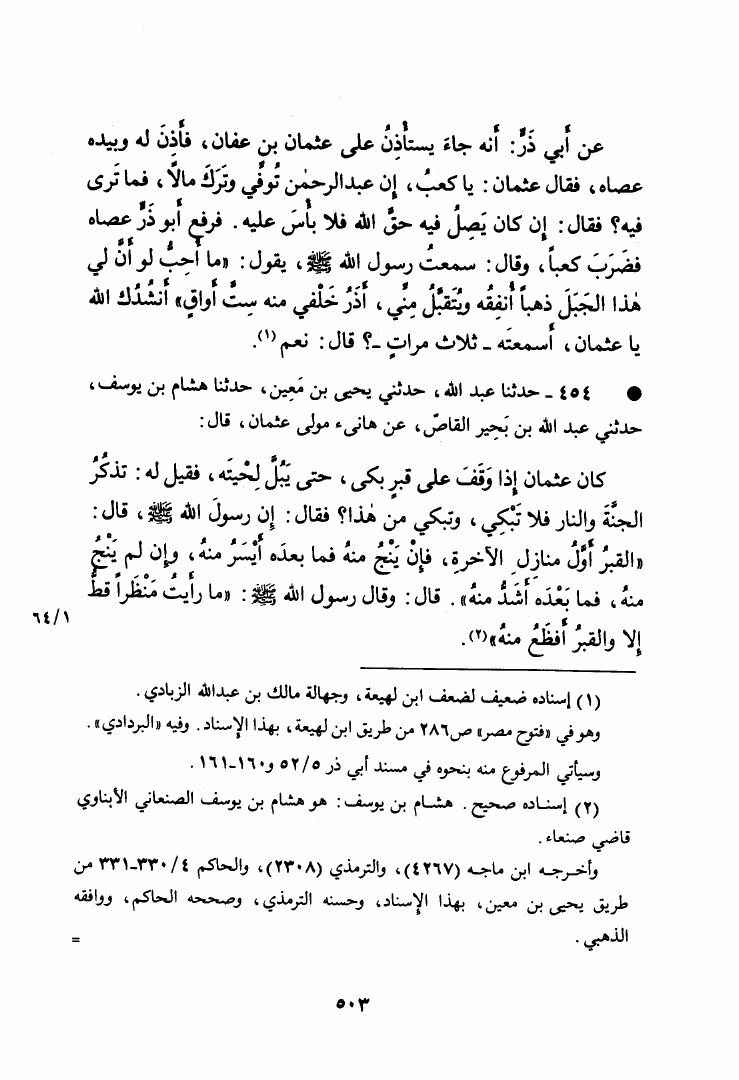 عن أَبي ذَرٍّ: أَنه جاءَ يستأْذِنُ على عثمان بنِ عفان، فأَذِنَ له وبيده
عصاه، فقال عثمان: يا كعبُ، إِن عبدالرحمٰن تُوفِّي وتَرَكَ مالاً، فما تَرى
فيه؟ فقال: إِن كان يَصِلُ فيه حقَّ الله فلا بأْسَ عليه. فرفع أَبو ذَرٍّ عصاه
فضَرَبَ كعباً، وقال: سمعتُ رسول الله ﷺ، يقول: «ما أُحِبُّ لو أَنَّ لي
هٰذا الجَبَلَ ذهباً أُنفِقُه ويُتَقبَّلُ مِنِّي، أَذَرُ خَلْفي منه سِتَّ أَواقٍ» أَنشُدُك الله
يا عثمان، أَسمعتَه ـ ثلاث مراتٍ ـ؟ قال: نعم(١).
● ٤٥٤ ـ حدثنا عبد الله، حدثني يحيى بن مَعِين، حدثنا هشام بن يوسف،
حدثني عبد الله بن بَحِير القاصّ، عن هانىء مولى عثمان، قال:
كان عثمان إِذا وَقَفَ على قبرٍ بكى، حتى يَبُلَّ لِحْيتَه، فقيل له: تذكُرُ
الجنَّةَ والنار فلا تَبْكِي، وتبكي من هٰذا؟ فقال: إِن رسولَ الله ﷺ، قال:
«القبرُ أَوَّلُ منازِلِ الآخرةِ، فإِنْ يَنْجُ منهُ فما بعدَه أَيْسَرُ منهُ، وإِن لم يَنْجُ
منهُ، فما بَعْدَه أَشَدُّ منهُ». قال: وقال رسول الله ﷺ: «ما رأَيتُ مَنْظَراً قطُّ
إِلا والقبرُ أَفظَعُ منهُ»(٢).
٦٤/١
(١) إسناده ضعيف لضعف ابن لهيعة، وجهالة مالك بن عبدالله الزبادي.
وهو في «فتوح مصر» ص٢٨٦ من طريق ابن لهيعة، بهذا الإسناد. وفيه «البردادي».
وسيأتي المرفوع منه بنحوه في مسند أبي ذر ٥٢/٥ و١٦٠ـ١٦١.
(٢) إسناده صحيح. هشام بن يوسف: هو هشام بن يوسف الصنعاني الأبناوي
قاضي صنعاء.
وأخرجه ابن ماجه (٤٢٦٧)، والترمذي (٢٣٠٨)، والحاكم ٣٣٠/٤ـ٣٣١ من
طريق يحيى بن معين، بهذا الإسناد، وحسنه الترمذي، وصححه الحاكم، ووافقه
الذهبي. =
٥٠٣